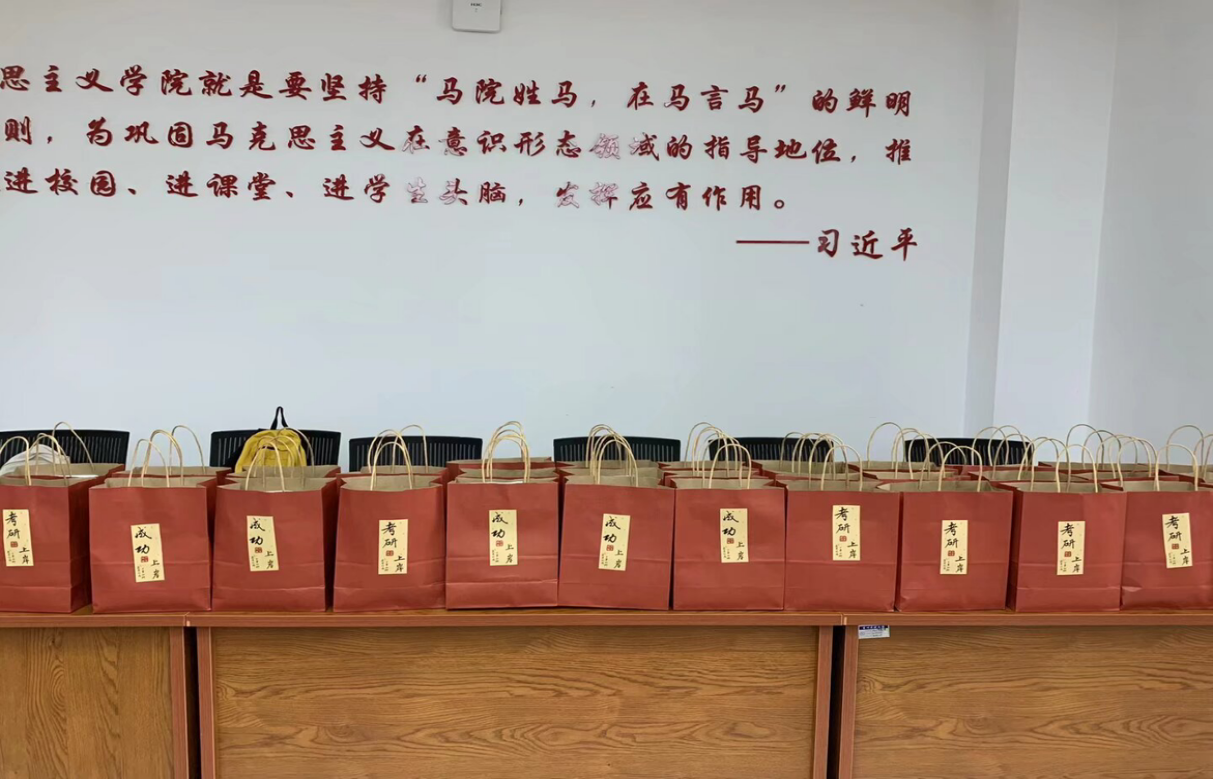 思主义学院就是要坚持“马院姓马，在马言马”的鲜明
则，为巩固马克思主义在意识形态领域的指导地位，推
进校园、进课堂、进学生头脑，发挥应有作用。
——习近平
考研 上岸
成功 上岸
成功 上岸
考研 上岸
成功 上岸
成功 上岸
成功 上岸
考研 上岸
考研 上岸
考研 上岸
考研 上岸